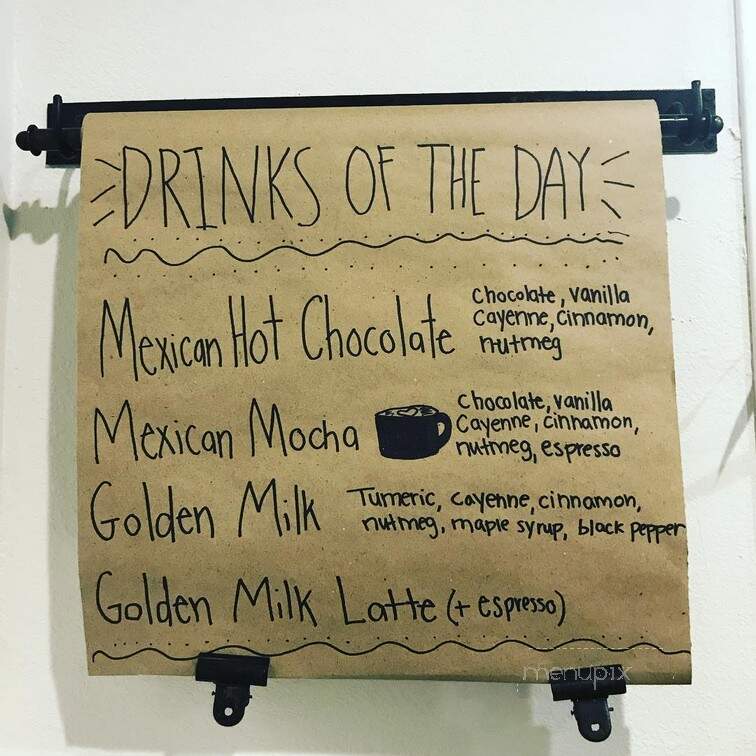 DRINKS OF THE DAY
Mexican Hot Chocolate
chocolate, vanilla
cayenne, cinnamon,
nutmeg
Mexican Mocha
chocolate, vanilla
Cayenne, cinnamon,
nutmeg, espresso
Golden Milk
Tumeric, cayenne, cinnamon,
nutmeg, maple syrup, black pepper
Golden Milk Latte (+ espresso)
menupix